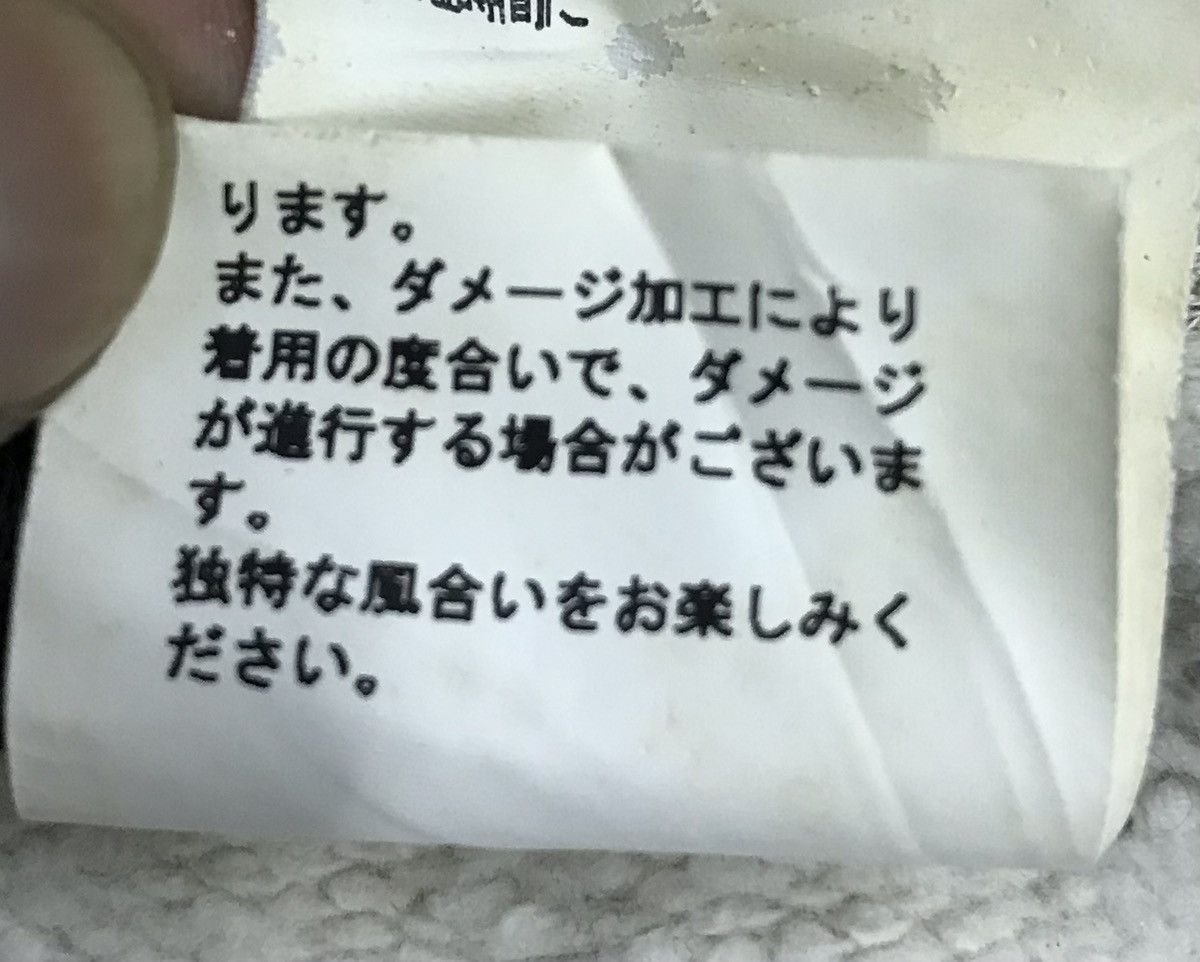 ります。
また、ダメージ加工により
着用の度合いで、ダメージ
が進行する場合がございま
す。
独特な風合いをお楽しみく
ださい。